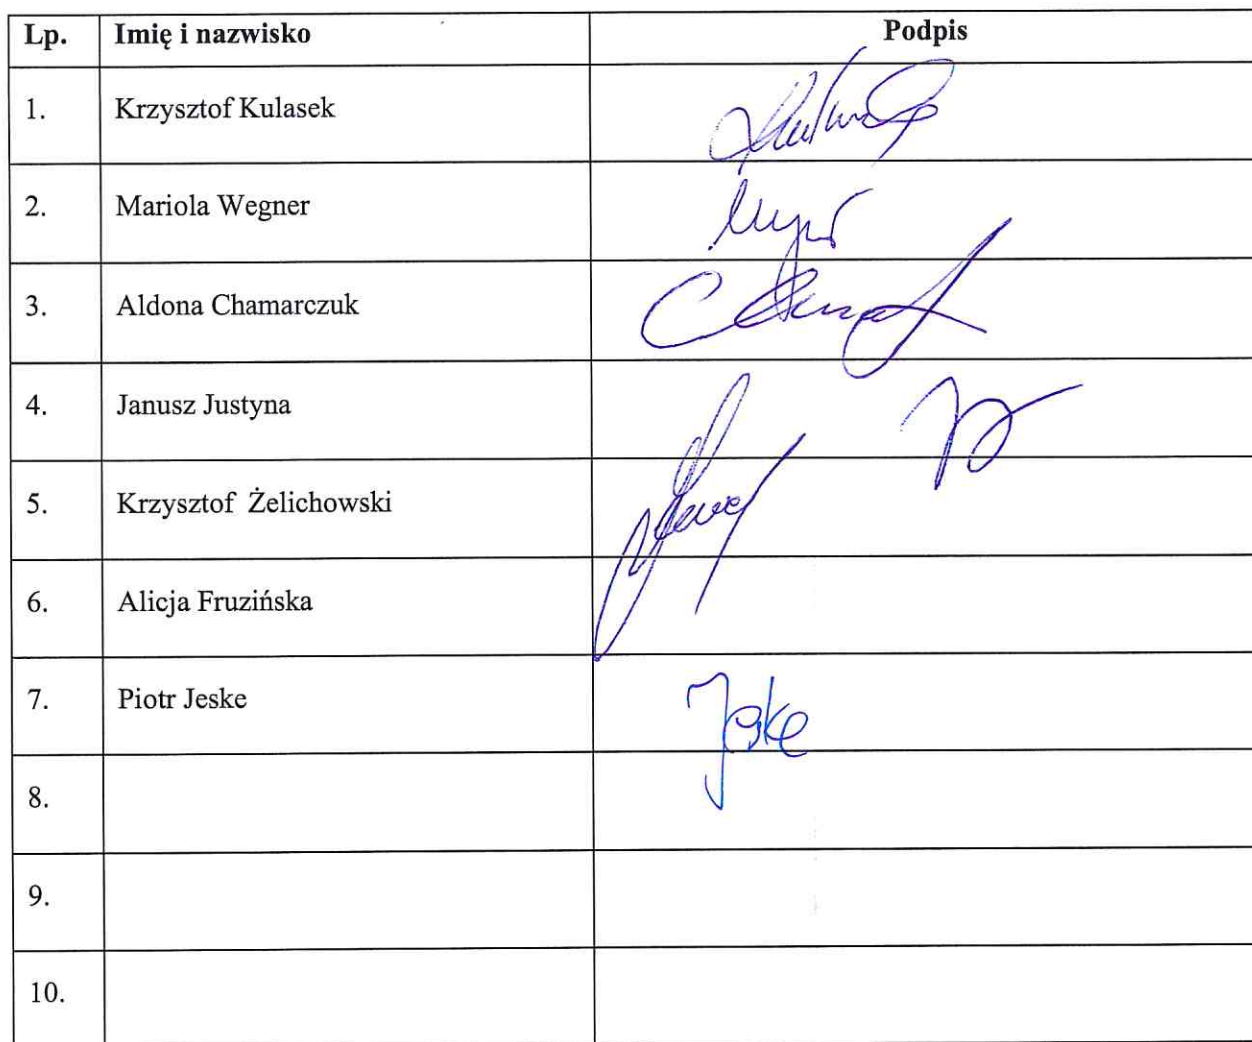 Lp. Imię i nazwisko Podpis
1. Krzysztof Kulasek
2. Mariola Wegner
3. Aldona Chamarczuk
4. Janusz Justyna
5. Krzysztof Żelichowski
6. Alicja Fruzińska
7. Piotr Jeske Jeske
8.
9.
10.